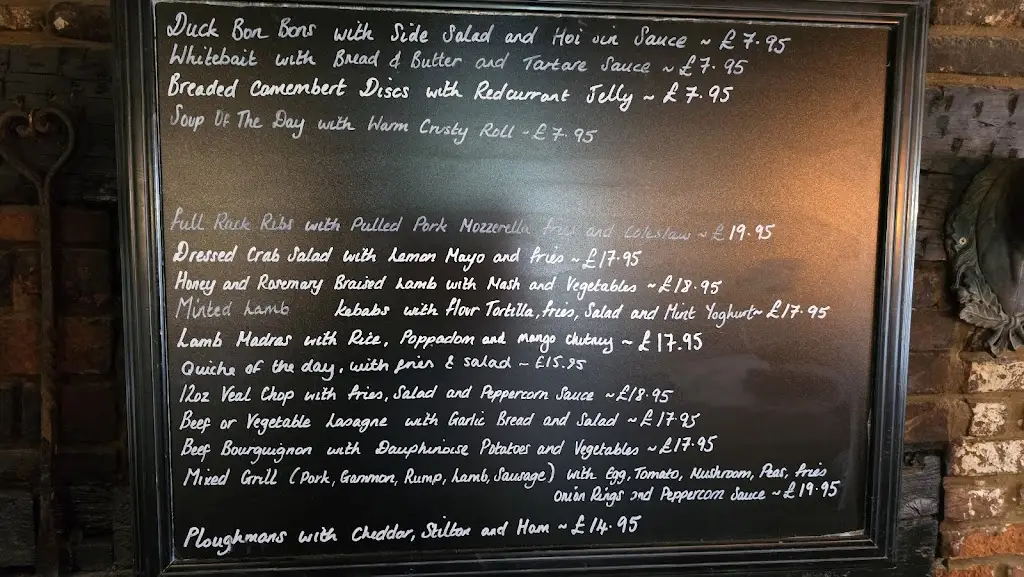 Duck Bon Bons with Side Salad and Hoi sin Sauce ~ £7.95
Whitebait with Bread & Butter and Tartare Sauce ~ £7.95
Breaded Camembert Discs with Redcurrant Jelly ~ £7.95
Soup Of The Day with Warm Crusty Roll - £7.95
Full Rack Ribs with Pulled Pork Mozzerella fries and Coleslaw ~ £19.95
Dressed Crab Salad with Lemon Mayo and fries ~ £17.95
Honey and Rosemary Braised Lamb with Mash and Vegetables ~ £18.95
Minted Lamb kebabs with flour Tortilla, fries, Salad and Mint Yoghurt ~ £17.95
Lamb Madras with Rice, Poppadom and mango chutney ~ £17.95
Quiche of the day, with fries & salad ~ £15.95
12oz Veal Chop with fries, Salad and Peppercorn Sauce ~ £18.95
Beef or Vegetable Lasagne with Garlic Bread and Salad ~ £17.95
Beef Bourguignon with Dauphinoise Potatoes and Vegetables ~ £17.95
Mixed Grill (Pork, Gammon, Rump, Lamb, Sausage) with Egg, Tomato, Mushroom, Peas, fries
Onion Rings and Peppercorn Sauce ~ £19.95
Ploughmans with Cheddar, Stilton and Ham ~ £14.95